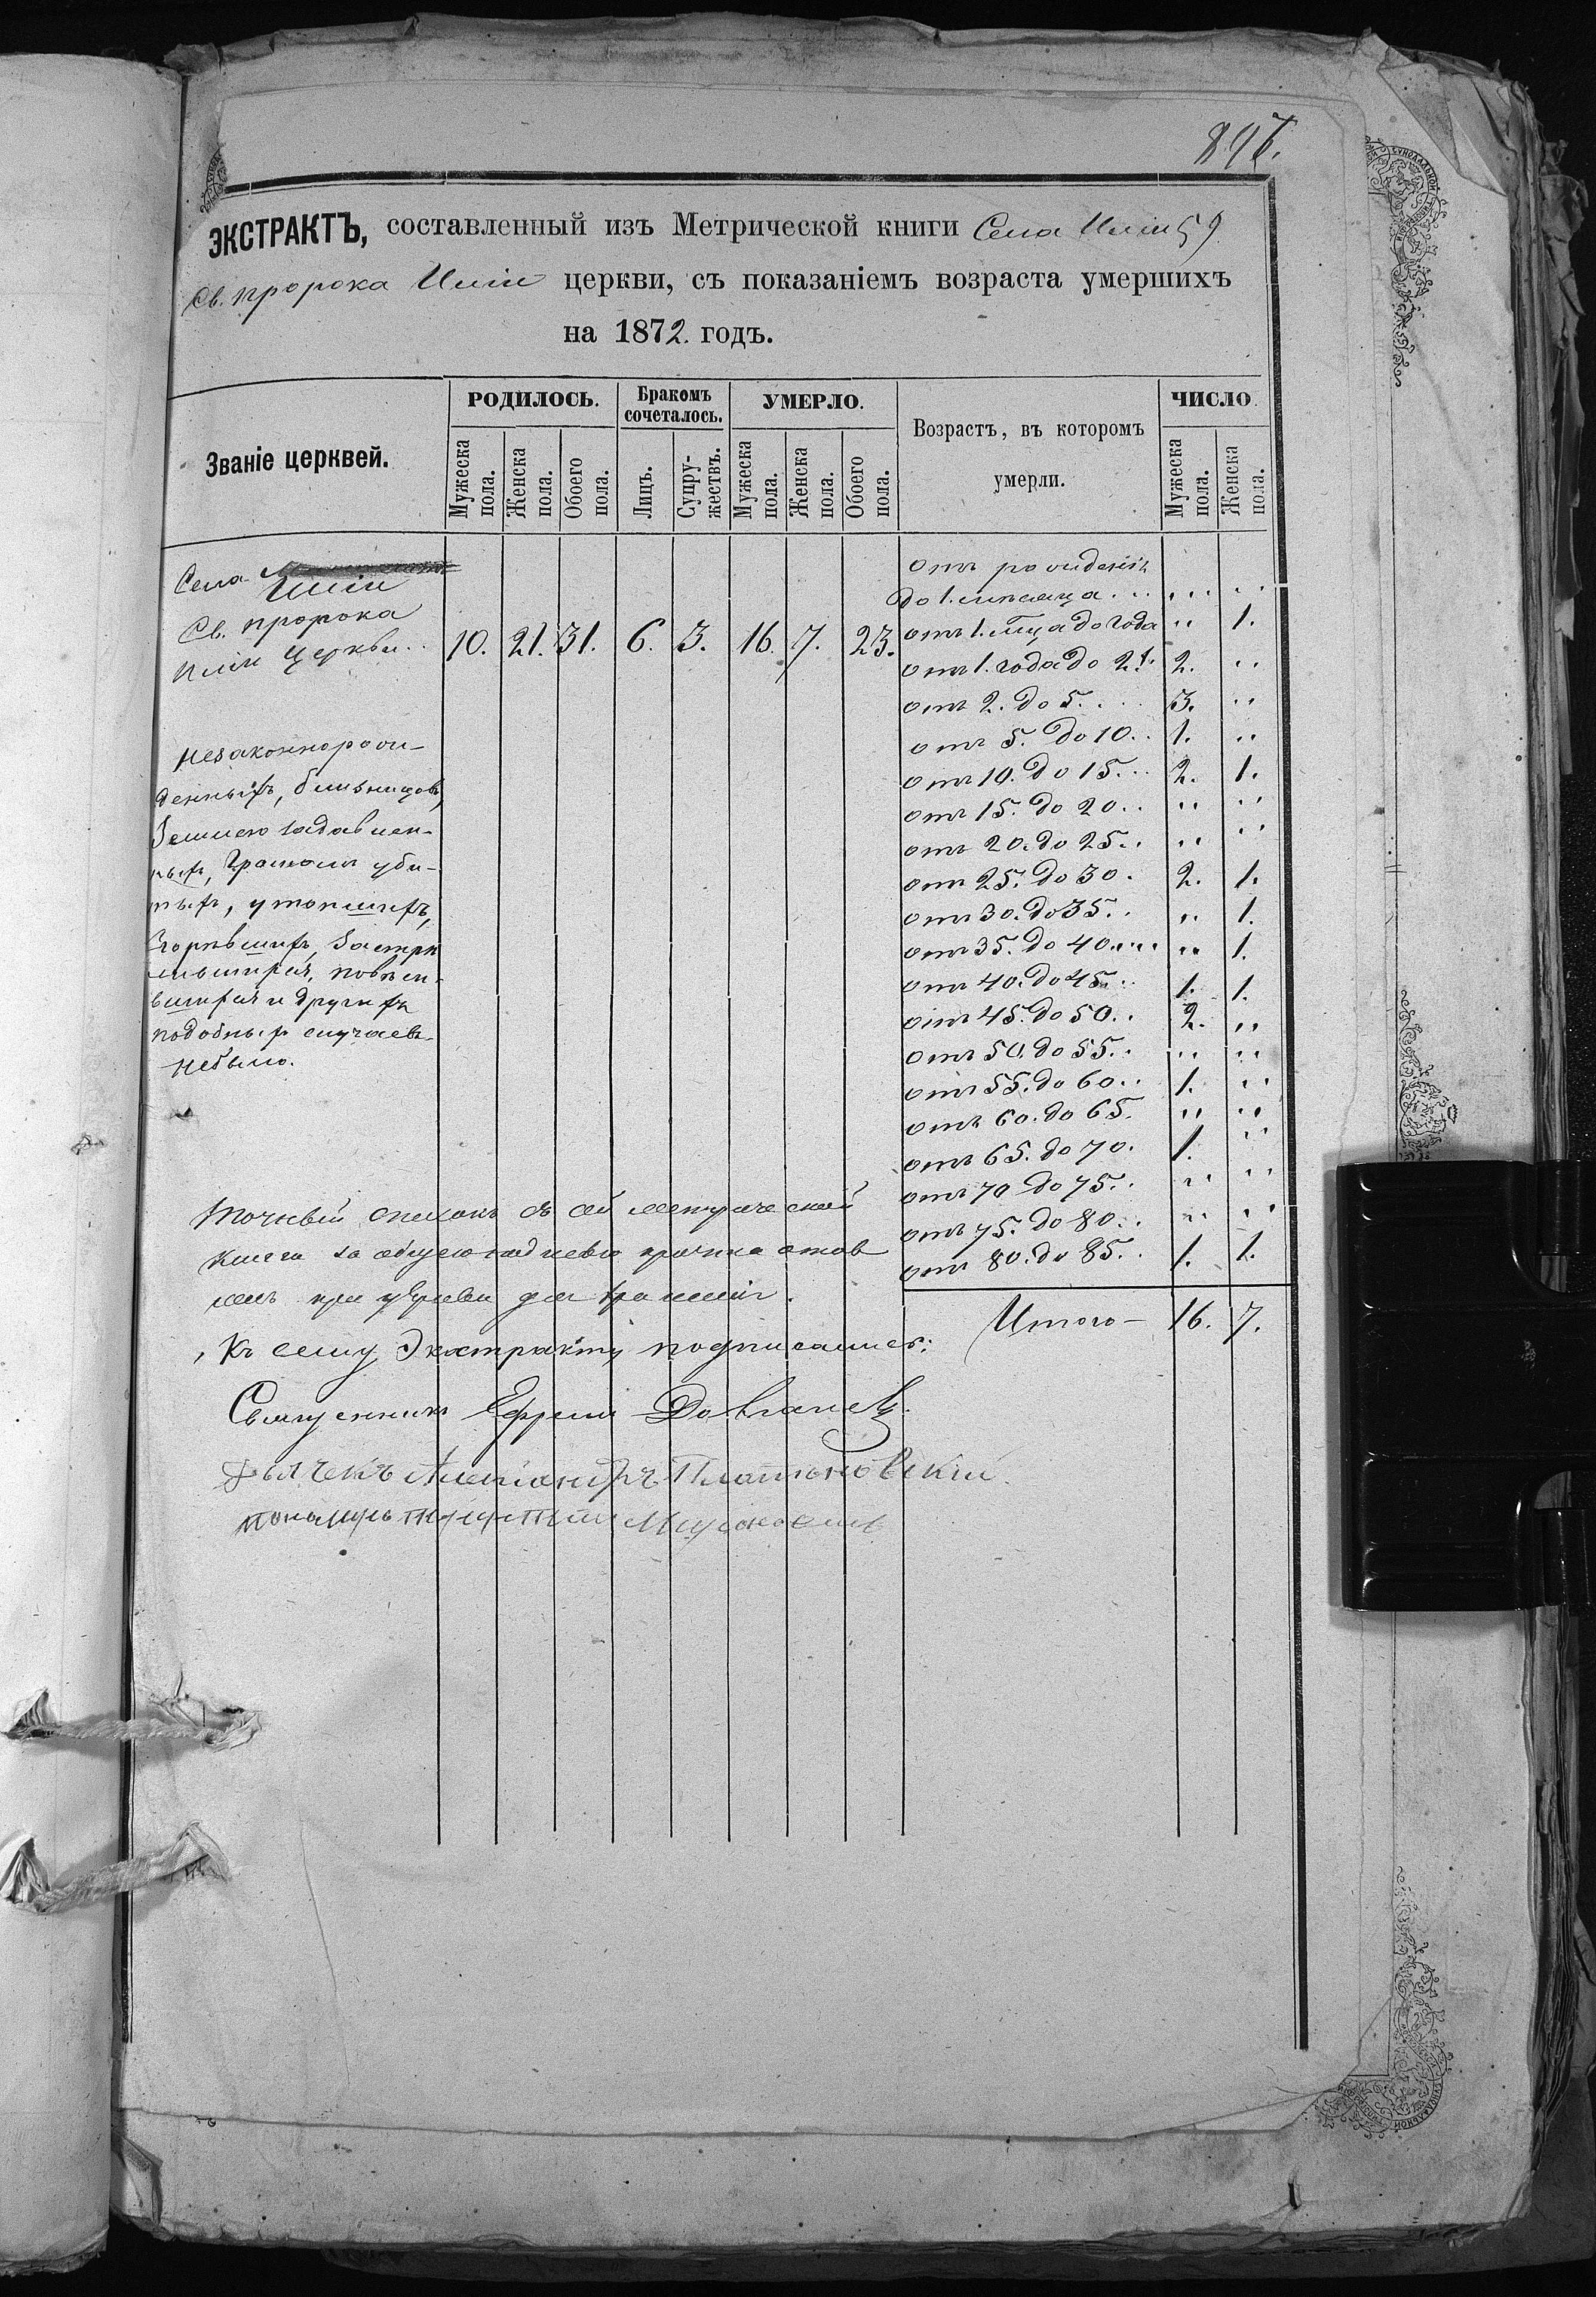 897.
ЭКСТРАКТЪ, составленный изъ Метрической книги Села
Св. пророка Иліи церкви, съ показаніемъ возраста умершихъ
на 1872. годъ.
Званіе церквей.
РОДИЛОСЬ.
Мужеска пола.
Женска пола.
Обоего пола.
Бракомъ сочеталось.
Лицъ.
Супружествъ.
УМЕРЛО.
Мужеска пола.
Женска пола.
Обоего пола.
Возрастъ, въ которомъ
умерли.
ЧИСЛО.
Мужеска пола.
Женска пола.
Села
Св. пророка
Иліи Церкви.. 10. 21. 31. 6. 3. 16. 7. 23.
отъ рожденія
до 1. мѣсяца . . . . . . . .
отъ 1. мца до года „ 1.
отъ 1. года до 2х. 2. „
отъ 2. до 5. . . . 3. „
отъ 5. до 10. . 1. „
отъ 10. до 15. . . 2. 1.
отъ 15. до 20. . „ „
отъ 20. до 25. . „ „
отъ 25. до 30. 2. 1.
отъ 30. до 35. . „ 1.
отъ 35. до 40. . . . „ 1.
отъ 40. до 45. . 1. 1.
отъ 45. до 50. . 2. „
отъ 50. до 55. . „ „
отъ 55. до 60. . 1. „
отъ 60. до 65. „ „
отъ 65. до 70. 1. „
отъ 70 до 75. . „ „
отъ 75. до 80. . „ „
отъ 80. до 85. . 1. 1.
Итого — 16. 7.
незаконнорож-
денныхъ, близнецовъ,
Землею задавлен-
ныхъ, Громомъ уби-
тыхъ, утопшихъ,
Сгорѣвшихъ, Застрѣ
лившихся, повѣси-
вшихся и другихъ
подобныхъ случаевъ
небыло.
Точный списокъ съ сей метрической
книги за
при церкви для храненія.
Къ сему Экстракту подписались:
Священникъ Ефремъ
Дьячекъ Александръ
пономарь